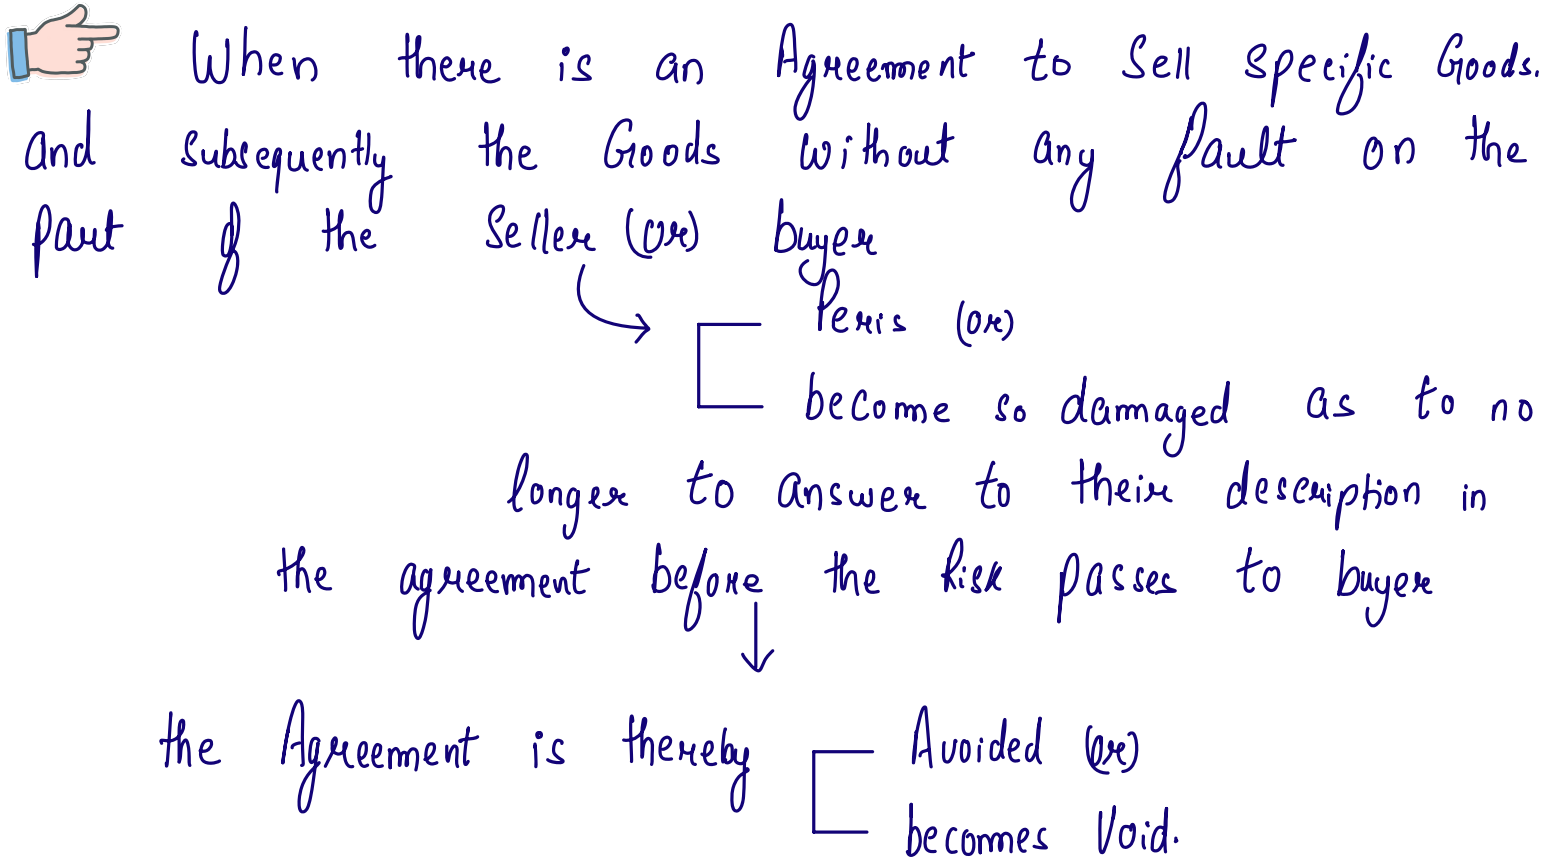 When there is an Agreement to Sell specific Goods.
and subsequently the Goods without any fault on the
part of the Seller (or) buyer
Peris (or)
become so damaged as to no
longer to answer to their description in
the agreement before the Risk passes to buyer
the Agreement is thereby Avoided (or)
becomes Void.